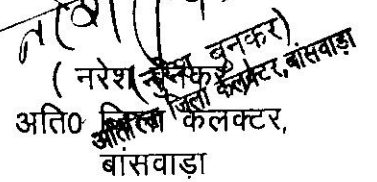 ( नरेश बुनकर)
अति० जिला कलक्टर,
बांसवाड़ा
अतिरिक्त जिला कलेक्टर, बांसवाड़ा